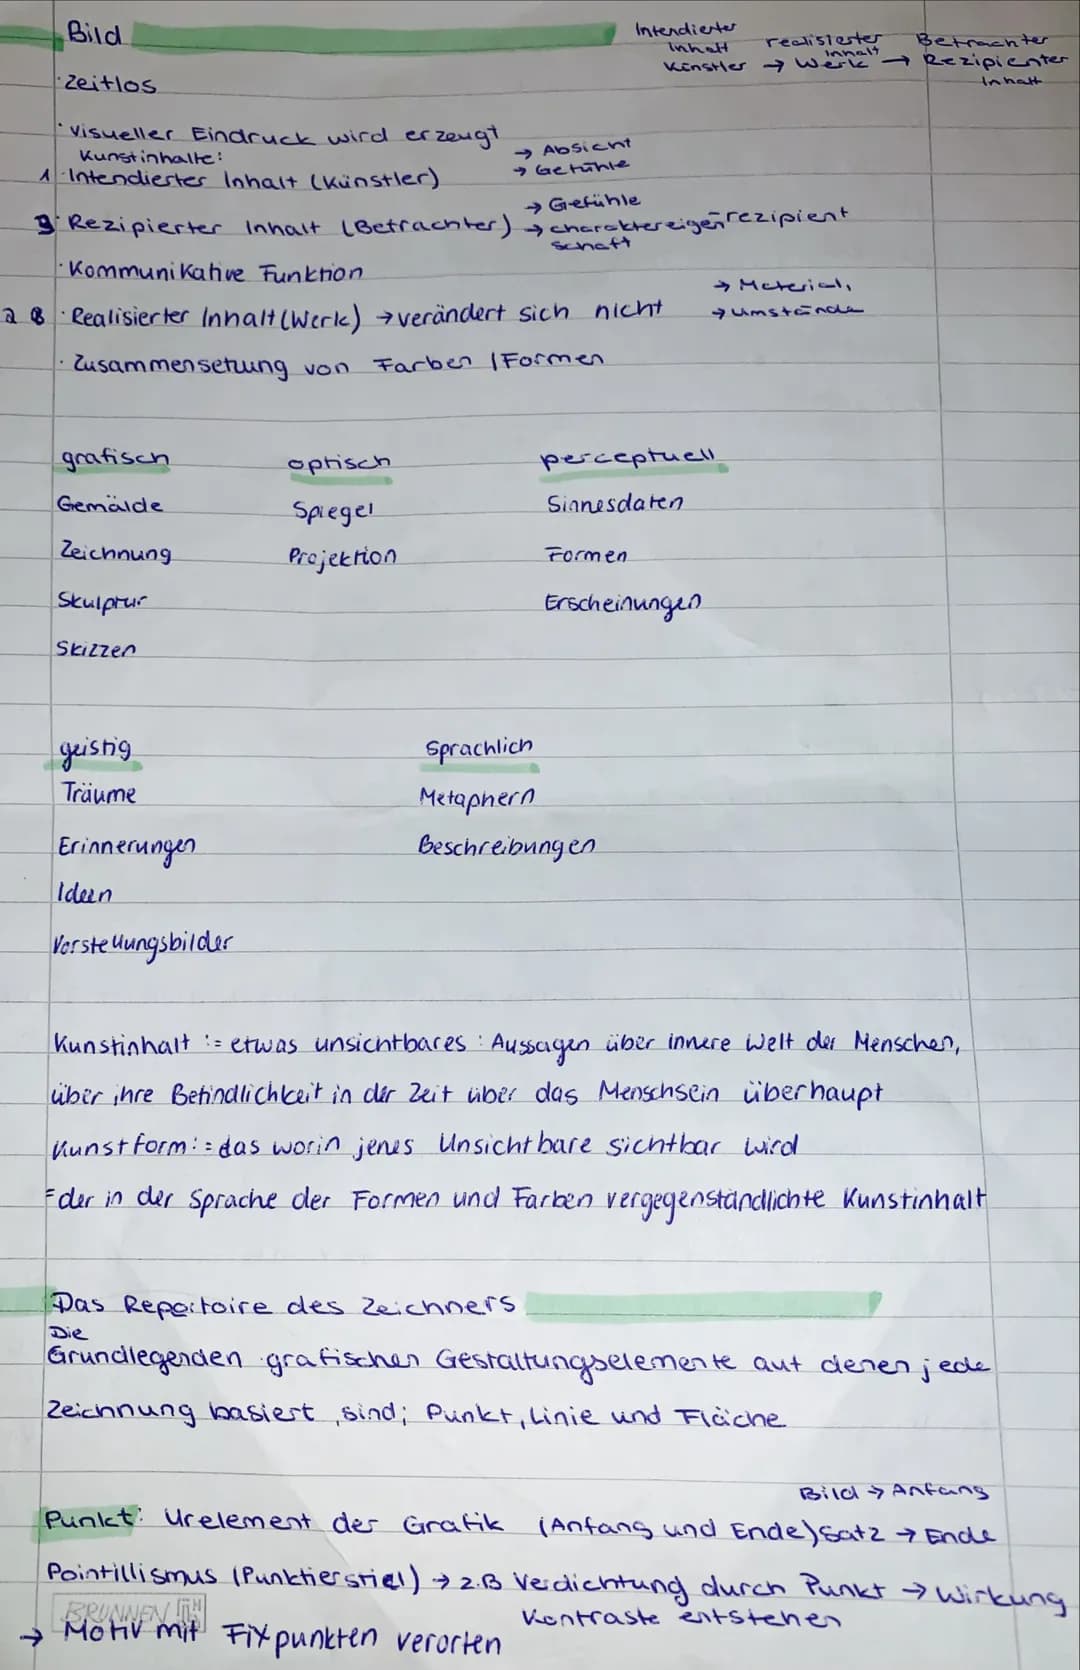 Bild
Intendierter Inhalt Künstler → realisierter Inhalt Werk → Betrachter Rezipierter Inhalt
·zeitlos
·visueller Eindruck wird erzeugt
Kunstinhalte:
→ Absicht
→ Gefühle
1 ·Intendierter Inhalt (Künstler)
→ Gefühle
3 ·Rezipierter Inhalt (Betrachter) → charaktereigenschaft rezipient
·Kommunikative Funktion
→ Material,
2 ·Realisierter Inhalt (Werk) → verändert sich nicht → Umstände
·Zusammensetzung von Farben / Formen
grafisch optisch perceptuell
Gemälde Spiegel Sinnesdaten
Zeichnung Projektion Formen
Skulptur Erscheinungen
Skizzen
geistig Sprachlich
Träume Metaphern
Erinnerungen Beschreibungen
Ideen
Vorstellungsbilder
Kunstinhalt := etwas unsichtbares : Aussagen über innere Welt der Menschen,
über ihre Befindlichkeit in der Zeit über das Menschsein überhaupt
Kunstform := das worin jenes Unsichtbare sichtbar wird
= der in der Sprache der Formen und Farben vergegenständlichte Kunstinhalt
Das Repertoire des Zeichners
Die
Grundlegenden grafischen Gestaltungselemente auf denen jede
Zeichnung basiert, sind; Punkt, Linie und Fläche
Bild → Anfang
Punkt: Urelement der Grafik (Anfang und Ende) Satz → Ende
Pointillismus (Punktierstiel) → z.B Verdichtung durch Punkt → Wirkung
Kontraste entstehen
BRUNNEN
→ Motiv mit Fixpunkten verorten